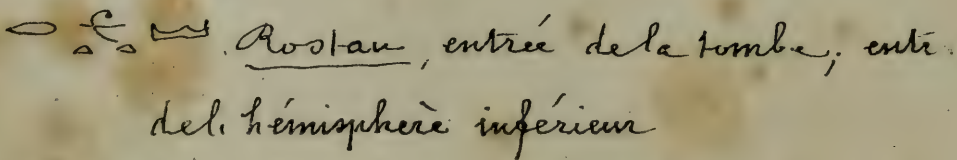 Rostau, entrée de la tombe; ent
del. hémisphère inférieur